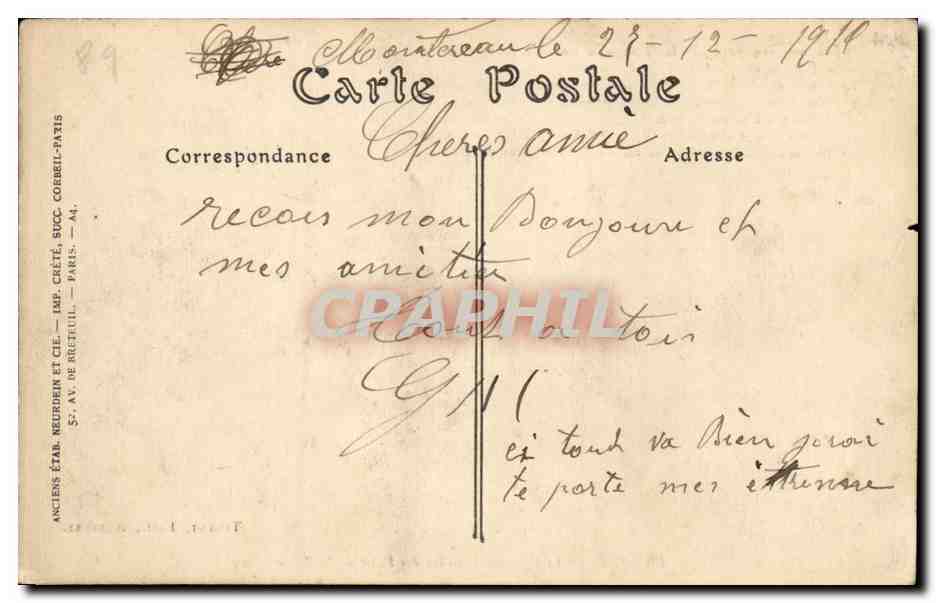 89
Montereau le 27-12-191
Carte Postale
Cheres amie
Correspondance
Adresse
recois mon Bonjoure et
mes amitier
CPARHIL
Tout a tois
G
ci tout va Bien jorai
te porte mes ettrenne
ANCIENS ÉTAB. NEURDEIN ET CIE. — IMP. CRÉTÉ, SUCC. CORBEIL-PARIS
52, AV. DE BRETEUIL. — PARIS. — A4.